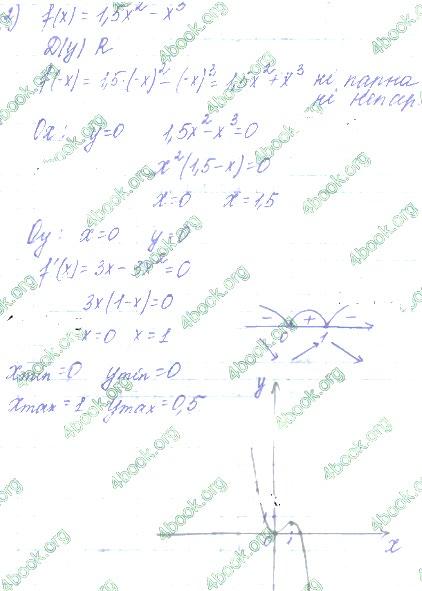 2) f(x) = 1,5x² - x³
D(y) R
f(-x) = 1,5·(-x)² - (-x)³ = 1,5x² + x³ ні парна
ні непар
Ox: y=0 1,5x² - x³ = 0
x²(1,5-x)=0
x=0 x=1,5
Oy: x=0 y=0
f'(x) = 3x - 3x² = 0
3x(1-x)=0
x=0 x=1
- + -
0 1
xmin=0 ymin=0
xmax=1 ymax=0,5
y
1
0 1 x
4book.org